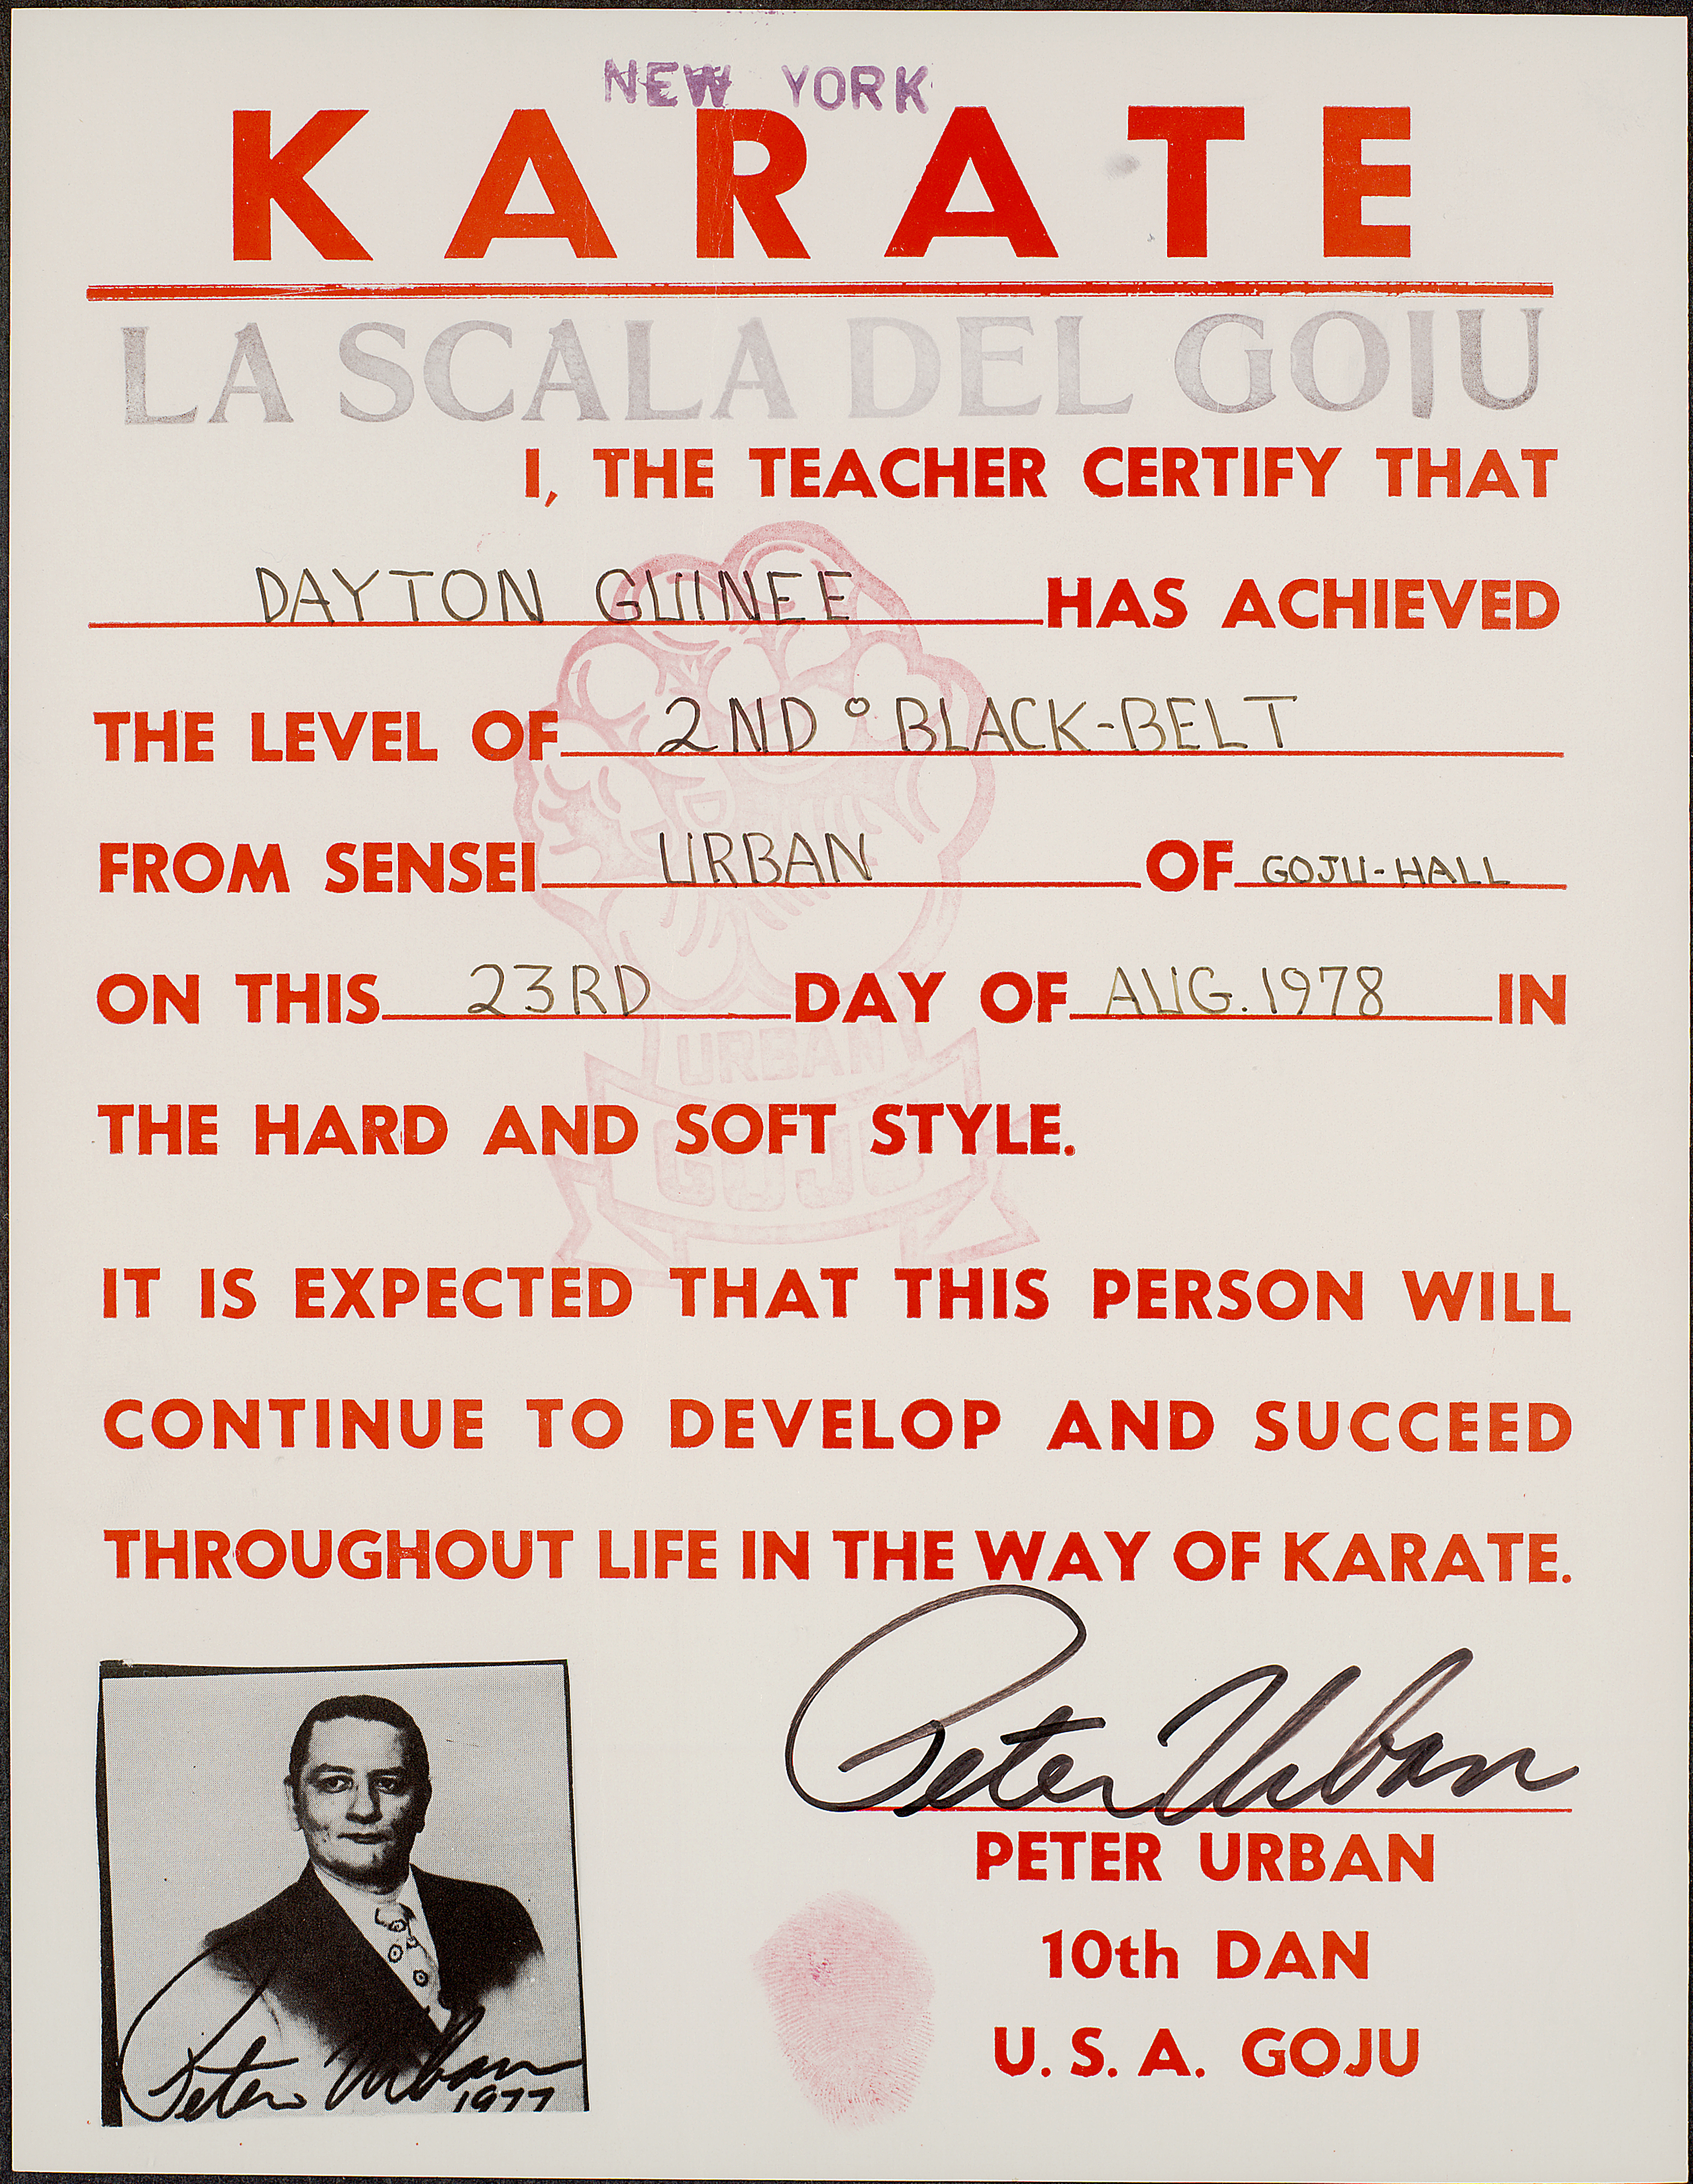 NEW YORK
KARATE
LA SCALA DEL GOJU
I, THE TEACHER CERTIFY THAT
DAYTON GUINEE HAS ACHIEVED
THE LEVEL OF 2ND° BLACK-BELT
FROM SENSEI URBAN OF GOJU-HALL
ON THIS 23RD DAY OF AUG. 1978 IN
URBAN
THE HARD AND SOFT STYLE.
GOJU
IT IS EXPECTED THAT THIS PERSON WILL
CONTINUE TO DEVELOP AND SUCCEED
THROUGHOUT LIFE IN THE WAY OF KARATE.
Peter Urban
PETER URBAN
10th DAN
U. S. A. GOJU
Peter Urban
1977